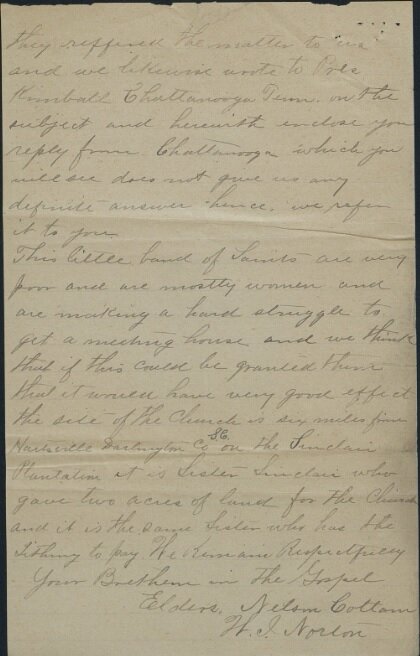 they reffired the matter to us
and we likewise wrote to Pres
Kimball Chattanooga Tenn. on the
subject and herewith enclose you
reply from Chattanooga which you
will see does not give us any
definite answer hence. we refer
it to you
This little band of Saints are very
poor and are mostly women and
are making a hard struggle to
get a meeting house and we think
that if this could be granted them
that it would have very good effect
the site of the Church is six miles from
Hartsville Darlington Co S.C. on the Sinclair
Plantation it is Sister Sinclair who
gave two acres of land for the Church
and it is the same Sister who has the
tithing to pay We Remain Respectfully
Your Brethern in the Gospel
Elders. Nelson Cottam
W. I. Norton